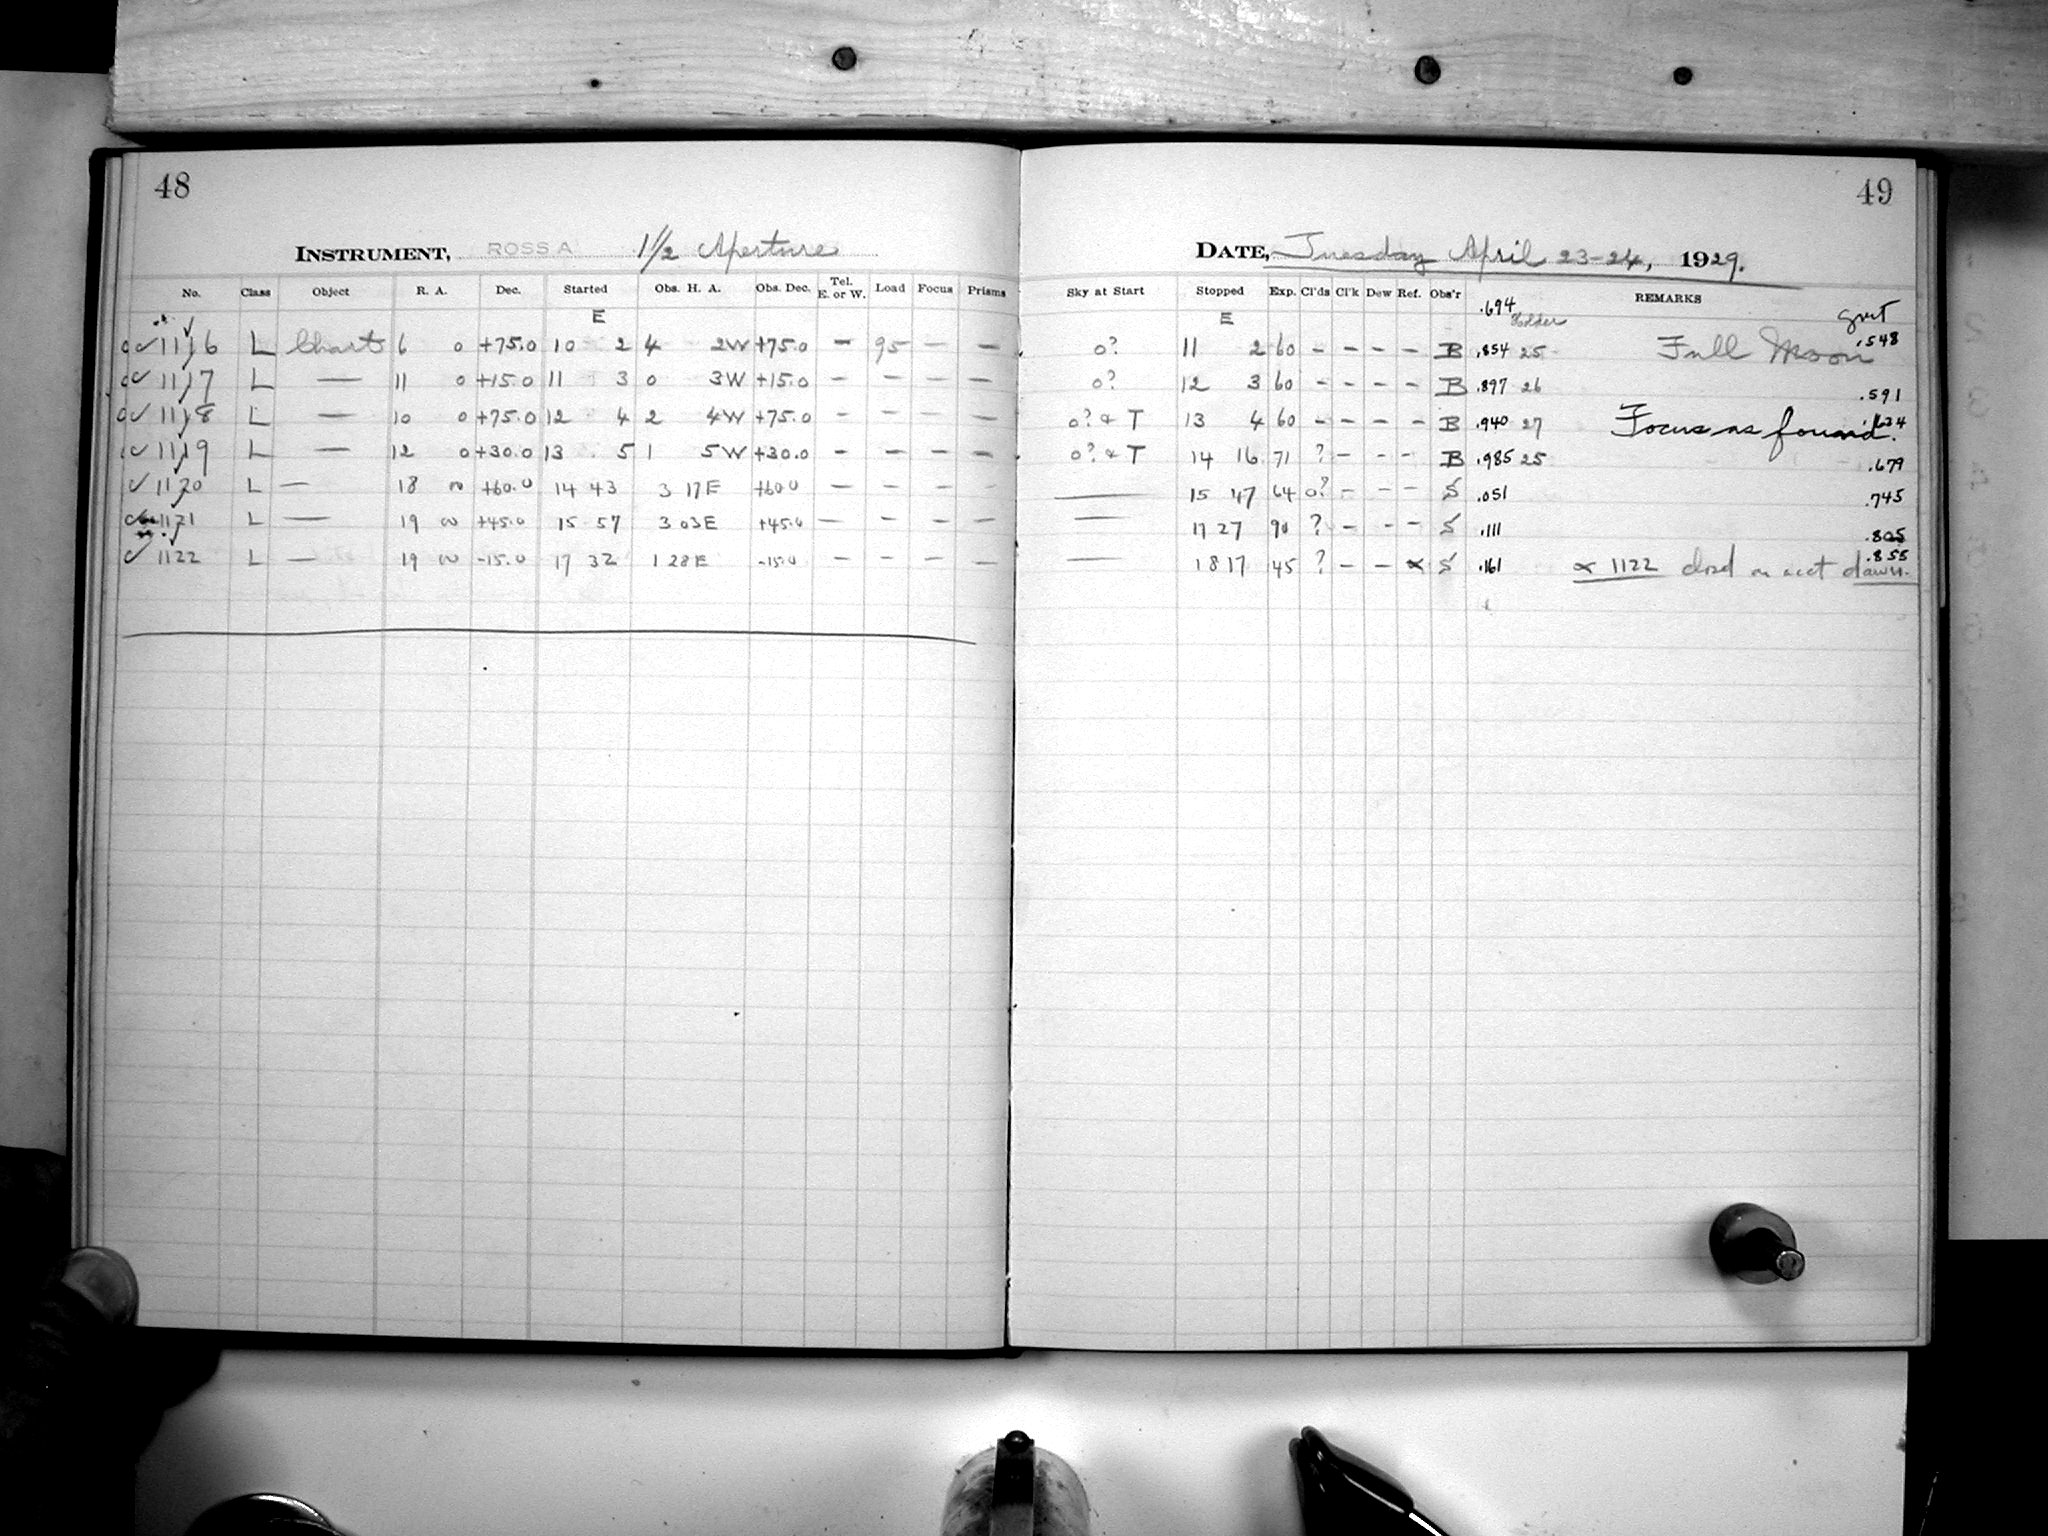 48
INSTRUMENT, ROSS A 1½ Aperture
No. Class Object R. A. Dec. Started Obs. H. A. Obs. Dec. Tel. E. or W. Load Focus Prisms
E
1116 L Chart 6 0 +75.0 10 2 4 2W +75.0 – 95 – –
1117 L — 11 0 +15.0 11 3 0 3W +15.0 – – – –
1118 L — 10 0 +75.0 12 4 2 4W +75.0 – – – –
1119 L — 12 0 +30.0 13 5 1 5W +30.0 – – – –
1120 L — 18 00 +60.0 14 43 3 17E +60.0 – – – –
1121 L — 19 00 +45.0 15 57 3 03E +45.0 – – – –
1122 L — 19 00 -15.0 17 32 1 28E -15.0 – – – –
49
DATE, Tuesday April 23-24, 1929.
Sky at Start Stopped Exp. Cl'ds Cl'k Dew Ref. Obs'r REMARKS
E .694 Holder GMT
0? 11 2 60 – – – – B .854 25 Full Moon .548
0? 12 3 60 – – – – B .897 26 .591
0? & T 13 4 60 – – – – B .940 27 Focus as found. .634
0? & T 14 16 71 ? – – – B .985 25 .679
— 15 47 64 0? – – – S .051 .745
— 17 27 90 ? – – – S .111 .805
— 18 17 45 ? – – x S .161 x 1122 closed on acct dawn. .855